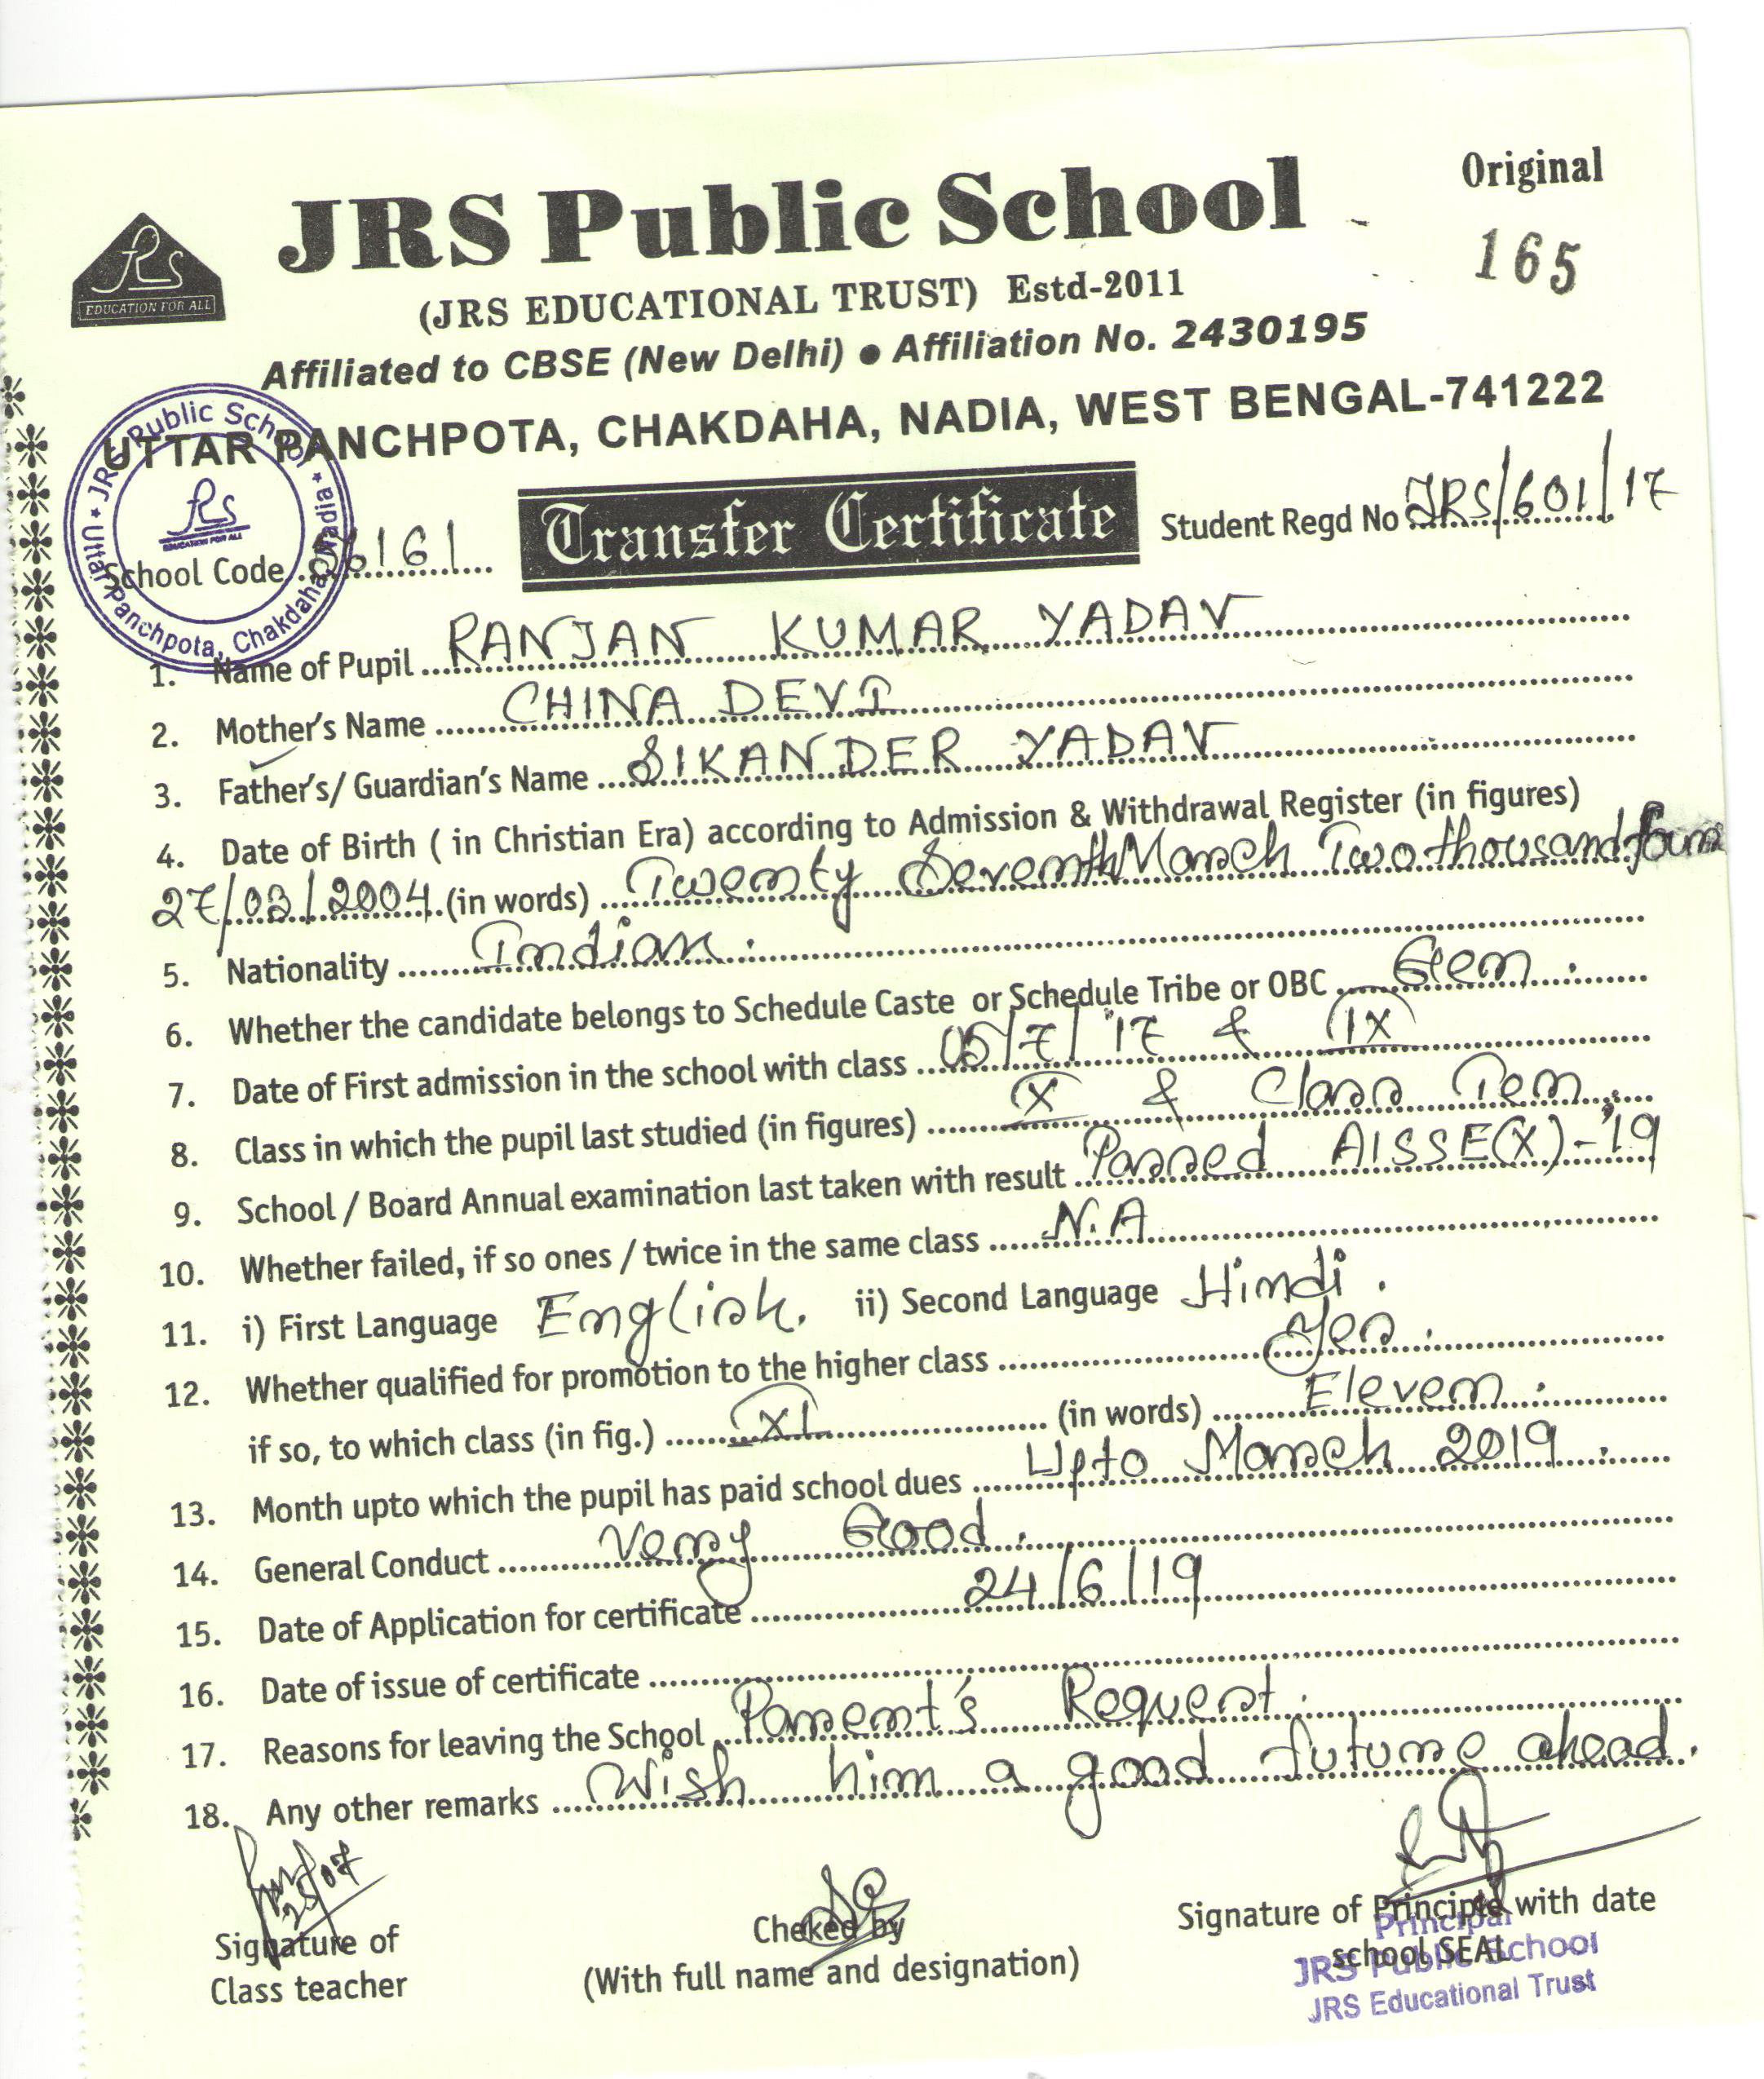 Original
JRS Public School
165
EDUCATION FOR ALL
(JRS EDUCATIONAL TRUST) Estd-2011
Affiliated to CBSE (New Delhi) ● Affiliation No. 2430195
UTTAR PANCHPOTA, CHAKDAHA, NADIA, WEST BENGAL-741222
JRS Public School * Uttar Panchpota, Chakdaha, Nadia *
JRS
EDUCATION FOR ALL
School Code 06161
Transfer Certificate
Student Regd No JRS/601/17
1. Name of Pupil RANJAN KUMAR YADAV
2. Mother's Name CHINA DEVI
3. Father's/ Guardian's Name SIKANDER YADAV
4. Date of Birth ( in Christian Era) according to Admission & Withdrawal Register (in figures)
27/03/2004 (in words) Twenty Seventh March Two thousand four
5. Nationality Indian.
6. Whether the candidate belongs to Schedule Caste or Schedule Tribe or OBC Gen.
7. Date of First admission in the school with class 05/7/'17 & IX
8. Class in which the pupil last studied (in figures) X & Class Ten.
9. School / Board Annual examination last taken with result Passed AISSE(X)-'19
10. Whether failed, if so ones / twice in the same class N.A
11. i) First Language English. ii) Second Language Hindi.
12. Whether qualified for promotion to the higher class Yes.
if so, to which class (in fig.) XI (in words) Eleven.
13. Month upto which the pupil has paid school dues Upto March 2019.
14. General Conduct Very Good.
15. Date of Application for certificate 24/6/19
16. Date of issue of certificate
17. Reasons for leaving the School Parent's Request.
18. Any other remarks Wish him a good future ahead.
25/07
Signature of
Class teacher
Cheked by
(With full name and designation)
Signature of Principle with date
school SEAL
Principal
JRS Public School
JRS Educational Trust